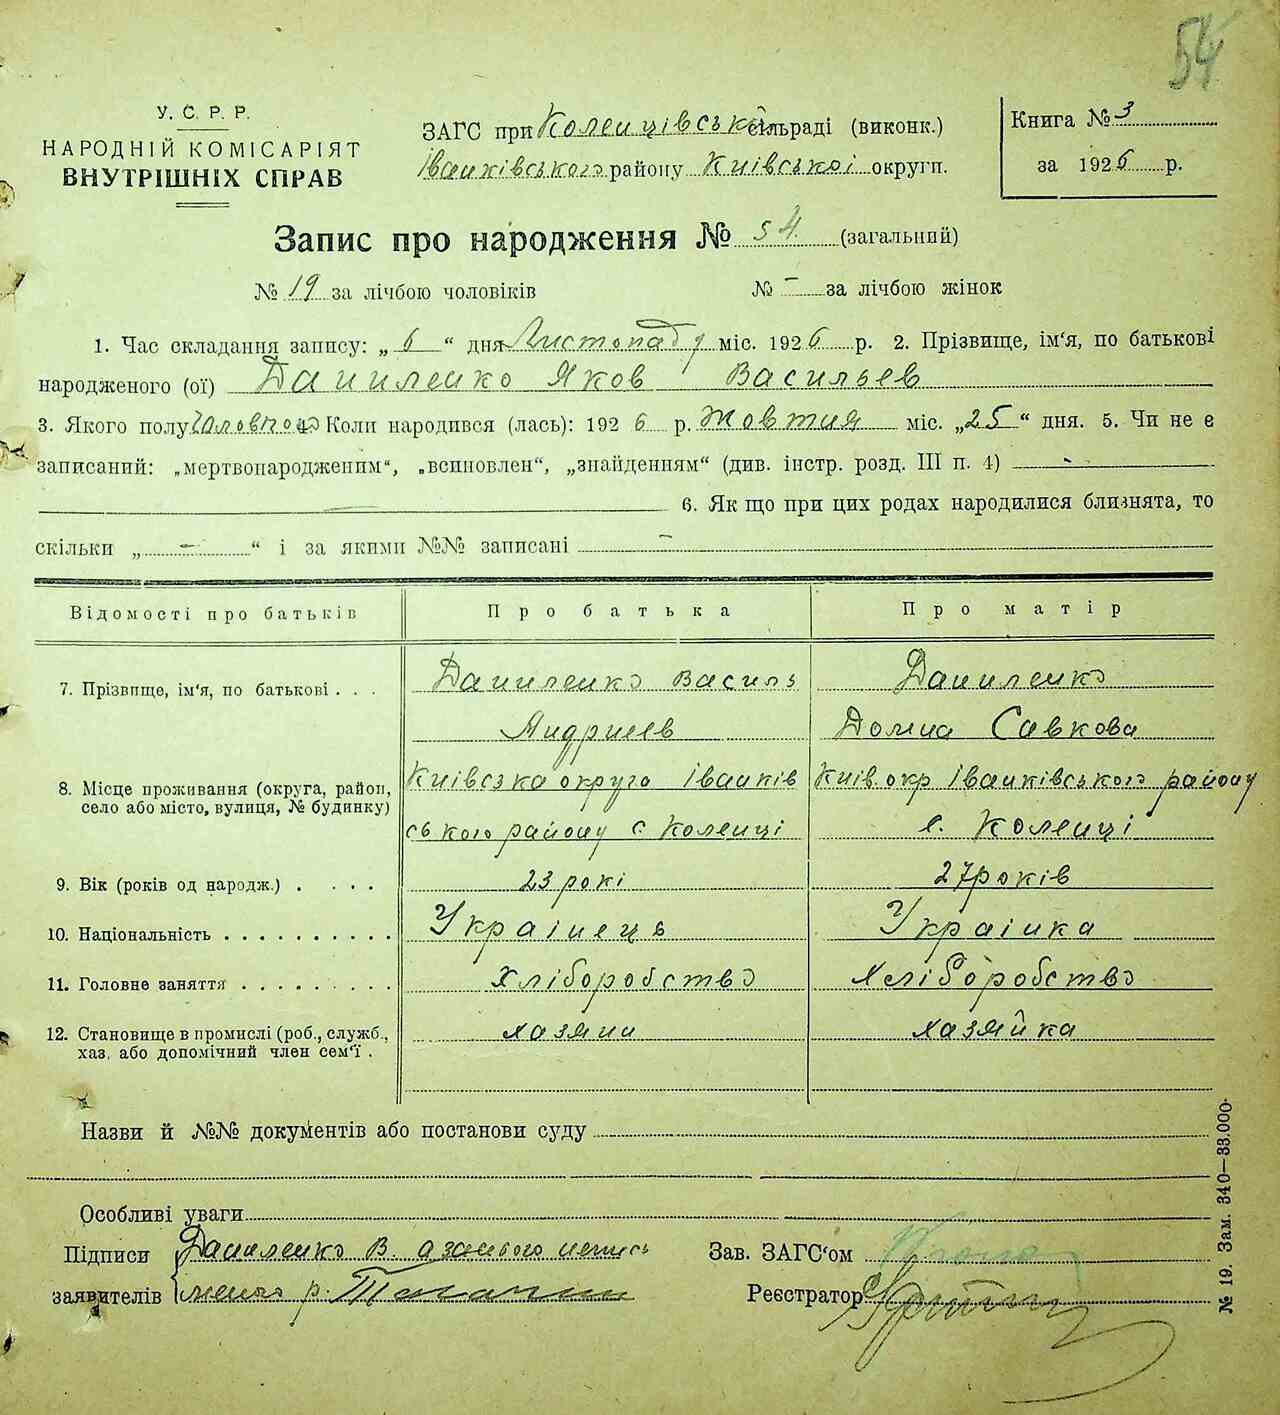 54
У. С. Р. Р.
НАРОДНІЙ КОМІСАРІЯТ
ВНУТРІШНІХ СПРАВ
ЗАГС при Коленцівській сільраді (виконк.)
Іванківського району Київської округи.
Книга № 3
за 1926 р.
Запис про народження № 54. (загальний)
№ 19 за лічбою чоловіків № - за лічбою жінок
1. Час складання запису: „ 6 “ дня Листопаду міс. 1926 р. 2. Прізвище, ім‘я, по батькові
народженого (ої) Даниленко Яков Васильев
3. Якого полу Чоловічого 4. Коли народився (лась): 1926 р. Жовтня міс. „25“ дня. 5. Чи не є
записаний: „мертвонародженим“, „всиновлен“, „знайденням“ (див. інстр. розд. III п. 4) -
6. Як що при цих родах народилися близнята, то
скільки „ - “ і за якими №№ записані -
Відомості про батьків Про батька Про матір
7. Прізвище, ім‘я, по батькові . . . Даниленко Василь Даниленко
Андриев Домна Савкова
8. Місце проживання (округа, район, село або місто, вулиця, № будинку) Київська округа Іванків Київ. окр Іванківського району
ського району с. Коленці с. Коленці
9. Вік (років од народж.) . . . . 23 рокі 27 років
10. Національність . . . . . . . . . . Українець Українка
11. Головне заняття . . . . . . . . . Хліборобство Хліборобство
12. Становище в промислі (роб., служб., хаз. або допомічний член сем‘ї . хазяин хазяйка
Назви й №№ документів або постанови суду
Особливі уваги
Підписи Даниленко В. а за нього
заявителів
Зав. ЗАГС‘ом
Реєстратор
№ 19. Зам. 340—33.000.